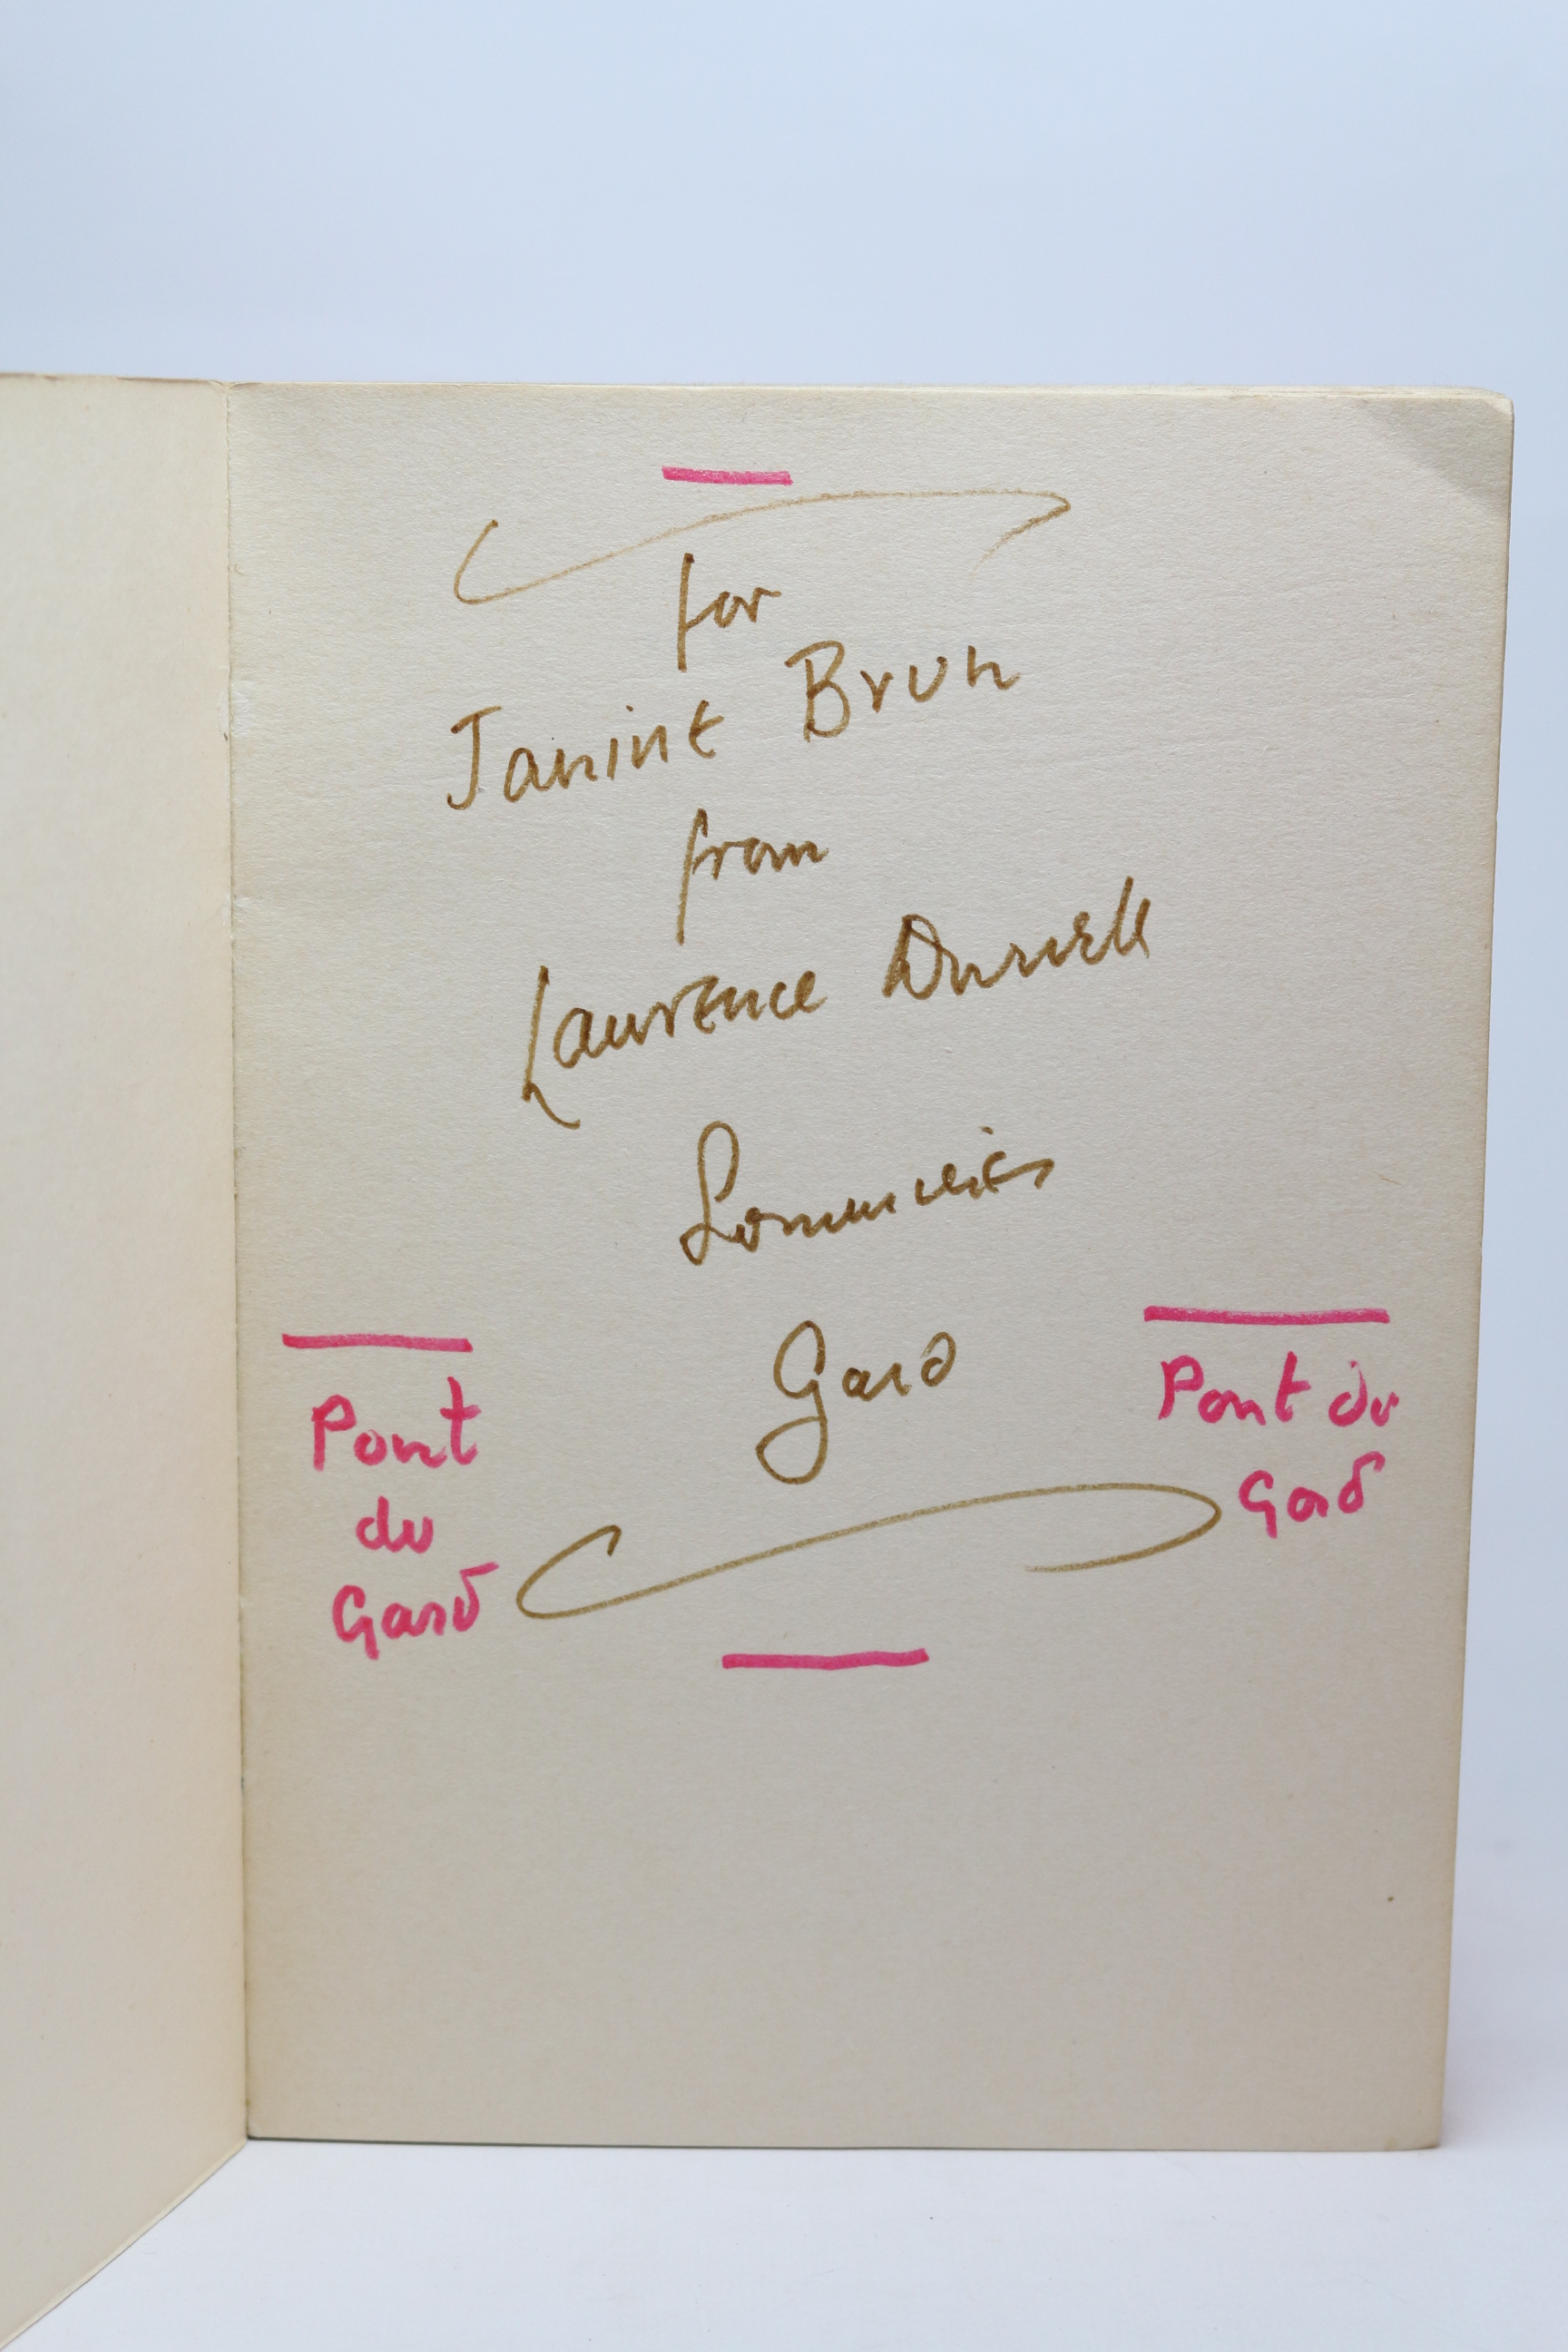 for
Janine Brun
from
Lawrence Durrell
Sommières
Gard
Pont
du
Gard
Pont du
Gard